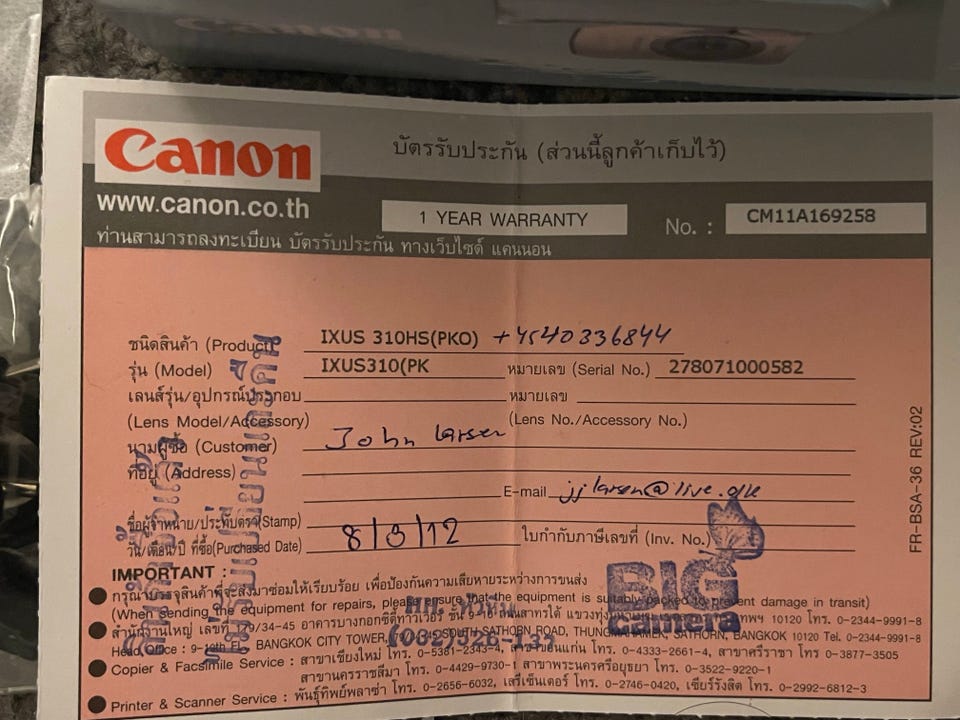 Canon
บัตรรับประกัน (ส่วนนี้ลูกค้าเก็บไว้)
www.canon.co.th
1 YEAR WARRANTY
No. : CM11A169258
ท่านสามารถลงทะเบียน บัตรรับประกัน ทางเว็บไซด์ แคนนอน
ชนิดสินค้า (Product) IXUS 310HS(PKO) +4540336844
รุ่น (Model) IXUS310(PK หมายเลข (Serial No.) 278071000582
เลนส์รุ่น/อุปกรณ์ประกอบ หมายเลข
(Lens Model/Accessory) (Lens No./Accessory No.)
นามผู้ซื้อ (Customer) John Larsen
ที่อยู่ (Address)
E-mail jjlarsen@live.dk
ชื่อผู้จำหน่าย/ประทับตรา(Stamp)
วัน/เดือน/ปี ที่ซื้อ(Purchased Date) 8/3/12 ใบกำกับภาษีเลขที่ (Inv. No.)
BIG
camera
IMPORTANT :
กรุณาบรรจุสินค้าที่จะส่งมาซ่อมให้เรียบร้อย เพื่อป้องกันความเสียหายระหว่างการขนส่ง
(When sending the equipment for repairs, please ensure that the equipment is suitably packed to prevent damage in transit)
สำนักงานใหญ่ เลขที่ 179/34-45 อาคารบางกอกซิตี้ทาวเวอร์ ชั้น 9-10 ถนนสาทรใต้ แขวงทุ่ง 10120 โทร. 0-2344-9991-8
Head Office : 9-10th Fl., BANGKOK CITY TOWER, SOUTH SATHORN ROAD, THUNGMAHAMEK, SATHORN, BANGKOK 10120 Tel. 0-2344-9991-8
Copier & Facsimile Service : สาขาเชียงใหม่ โทร. 0-5381-2343-4, สาขาขอนแก่น โทร. 0-4333-2661-4, สาขาศรีราชา โทร 0-3877-3505
สาขานครราชสีมา โทร. 0-4429-9730-1 สาขาพระนครศรีอยุธยา โทร. 0-3522-9220-1
Printer & Scanner Service : พันธุ์ทิพย์พลาซ่า โทร. 0-2656-6032, เสรีเซ็นเตอร์ โทร. 0-2746-0420, เซียร์รังสิต โทร. 0-2992-6812-3
FR-BSA-36 REV:02